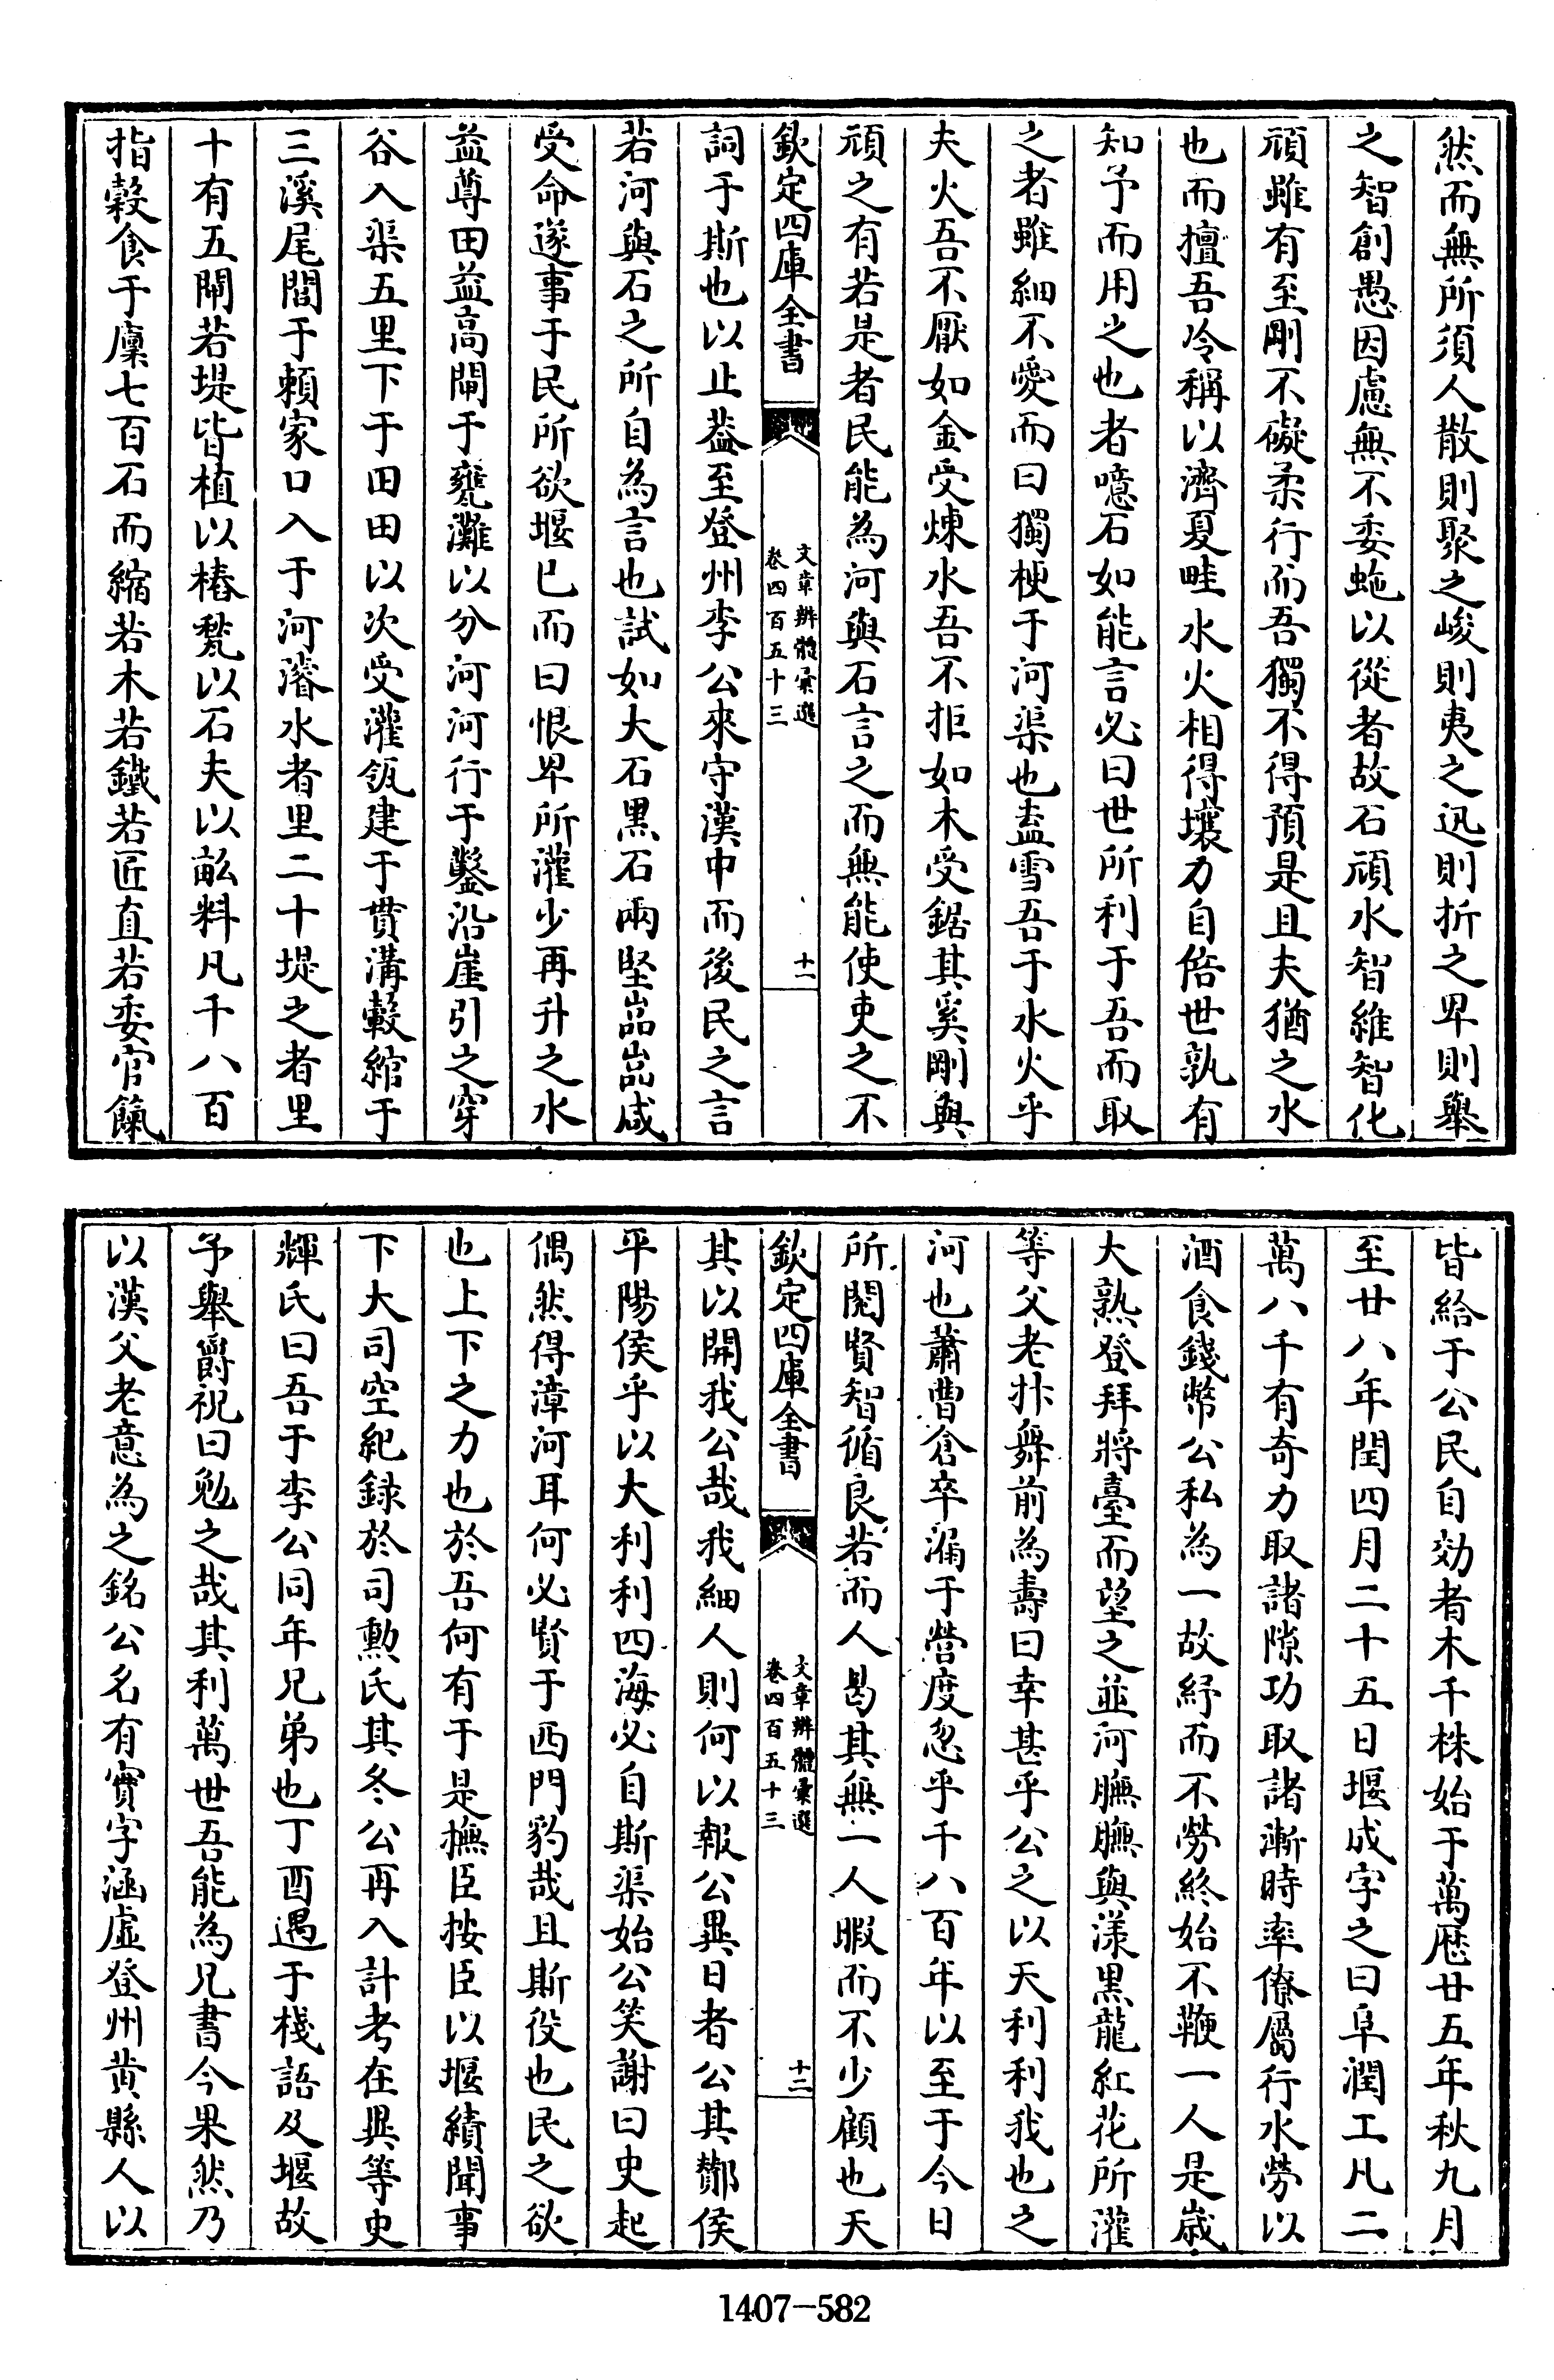 然而無所須人散則聚之峻則夷之迅則折之卑則舉
之智創愚因慮無不委虵以從者故石頑水智維智化
頑雖有至剛不礙柔行而吾獨不得預是且夫猶之水
也而擅吾冷稱以濟夏畦水火相得壤力自倍世孰有
知予而用之也者噫石如能言必曰世所利于吾而取
之者雖細不愛而曰獨梗于河渠也盍雪吾于水火乎
夫火吾不厭如金受煉水吾不拒如木受鋸其奚剛與
頑之有若是者民能為河與石言之而無能使吏之不
欽定四庫全書
文章辨體彙選
卷四百五十三
十一
詞于斯也以止葢至登州李公來守漢中而後民之言
若河與石之所自為言也試如大石黑石兩堅嵓嵓咸
受命遂事于民所欲堰已而曰恨卑所灌少再升之水
益尊田益高閘于甕灘以分河河行于鑿沿崖引之穿
谷入渠五里下于田田以次受灌瓴建于貫溝轂綰于
三溪尾閭于賴家口入于河濬水者里二十堤之者里
十有五閘若堤皆植以樁甃以石夫以畝料凡千八百
指穀食于廩七百石而縮若木若鐵若匠直若委官餼
皆給于公民自効者木千株始于萬厯廿五年秋九月
至廿八年閏四月二十五日堰成字之曰阜潤工凡二
萬八千有奇力取諸隙功取諸漸時率僚屬行水勞以
酒食錢幣公私為一故紓而不勞終始不鞭一人是歲
大熟登拜將臺而望之並河膴膴與漾黑龍紅花所灌
等父老抃舞前為壽曰幸甚乎公之以天利利我也之
河也蕭曹倉卒漏于營度忽乎千八百年以至于今日
所閱賢智循良若而人曷其無一人暇而不少顧也天
欽定四庫全書
文章辨體彙選
卷四百五十三
十二
其以開我公哉我細人則何以報公異日者公其酇侯
平陽侯乎以大利利四海必自斯渠始公笑謝曰史起
偶然得漳河耳何必賢于西門豹哉且斯役也民之欲
也上下之力也於吾何有于是撫臣按臣以堰績聞事
下大司空紀録於司勲氏其冬公再入計考在異等史
輝氏曰吾于李公同年兄弟也丁酉遇于棧語及堰故
予舉爵祝曰勉之哉其利萬世吾能為兄書今果然乃
以漢父老意為之銘公名有實字涵虛登州黄縣人以
1407-582